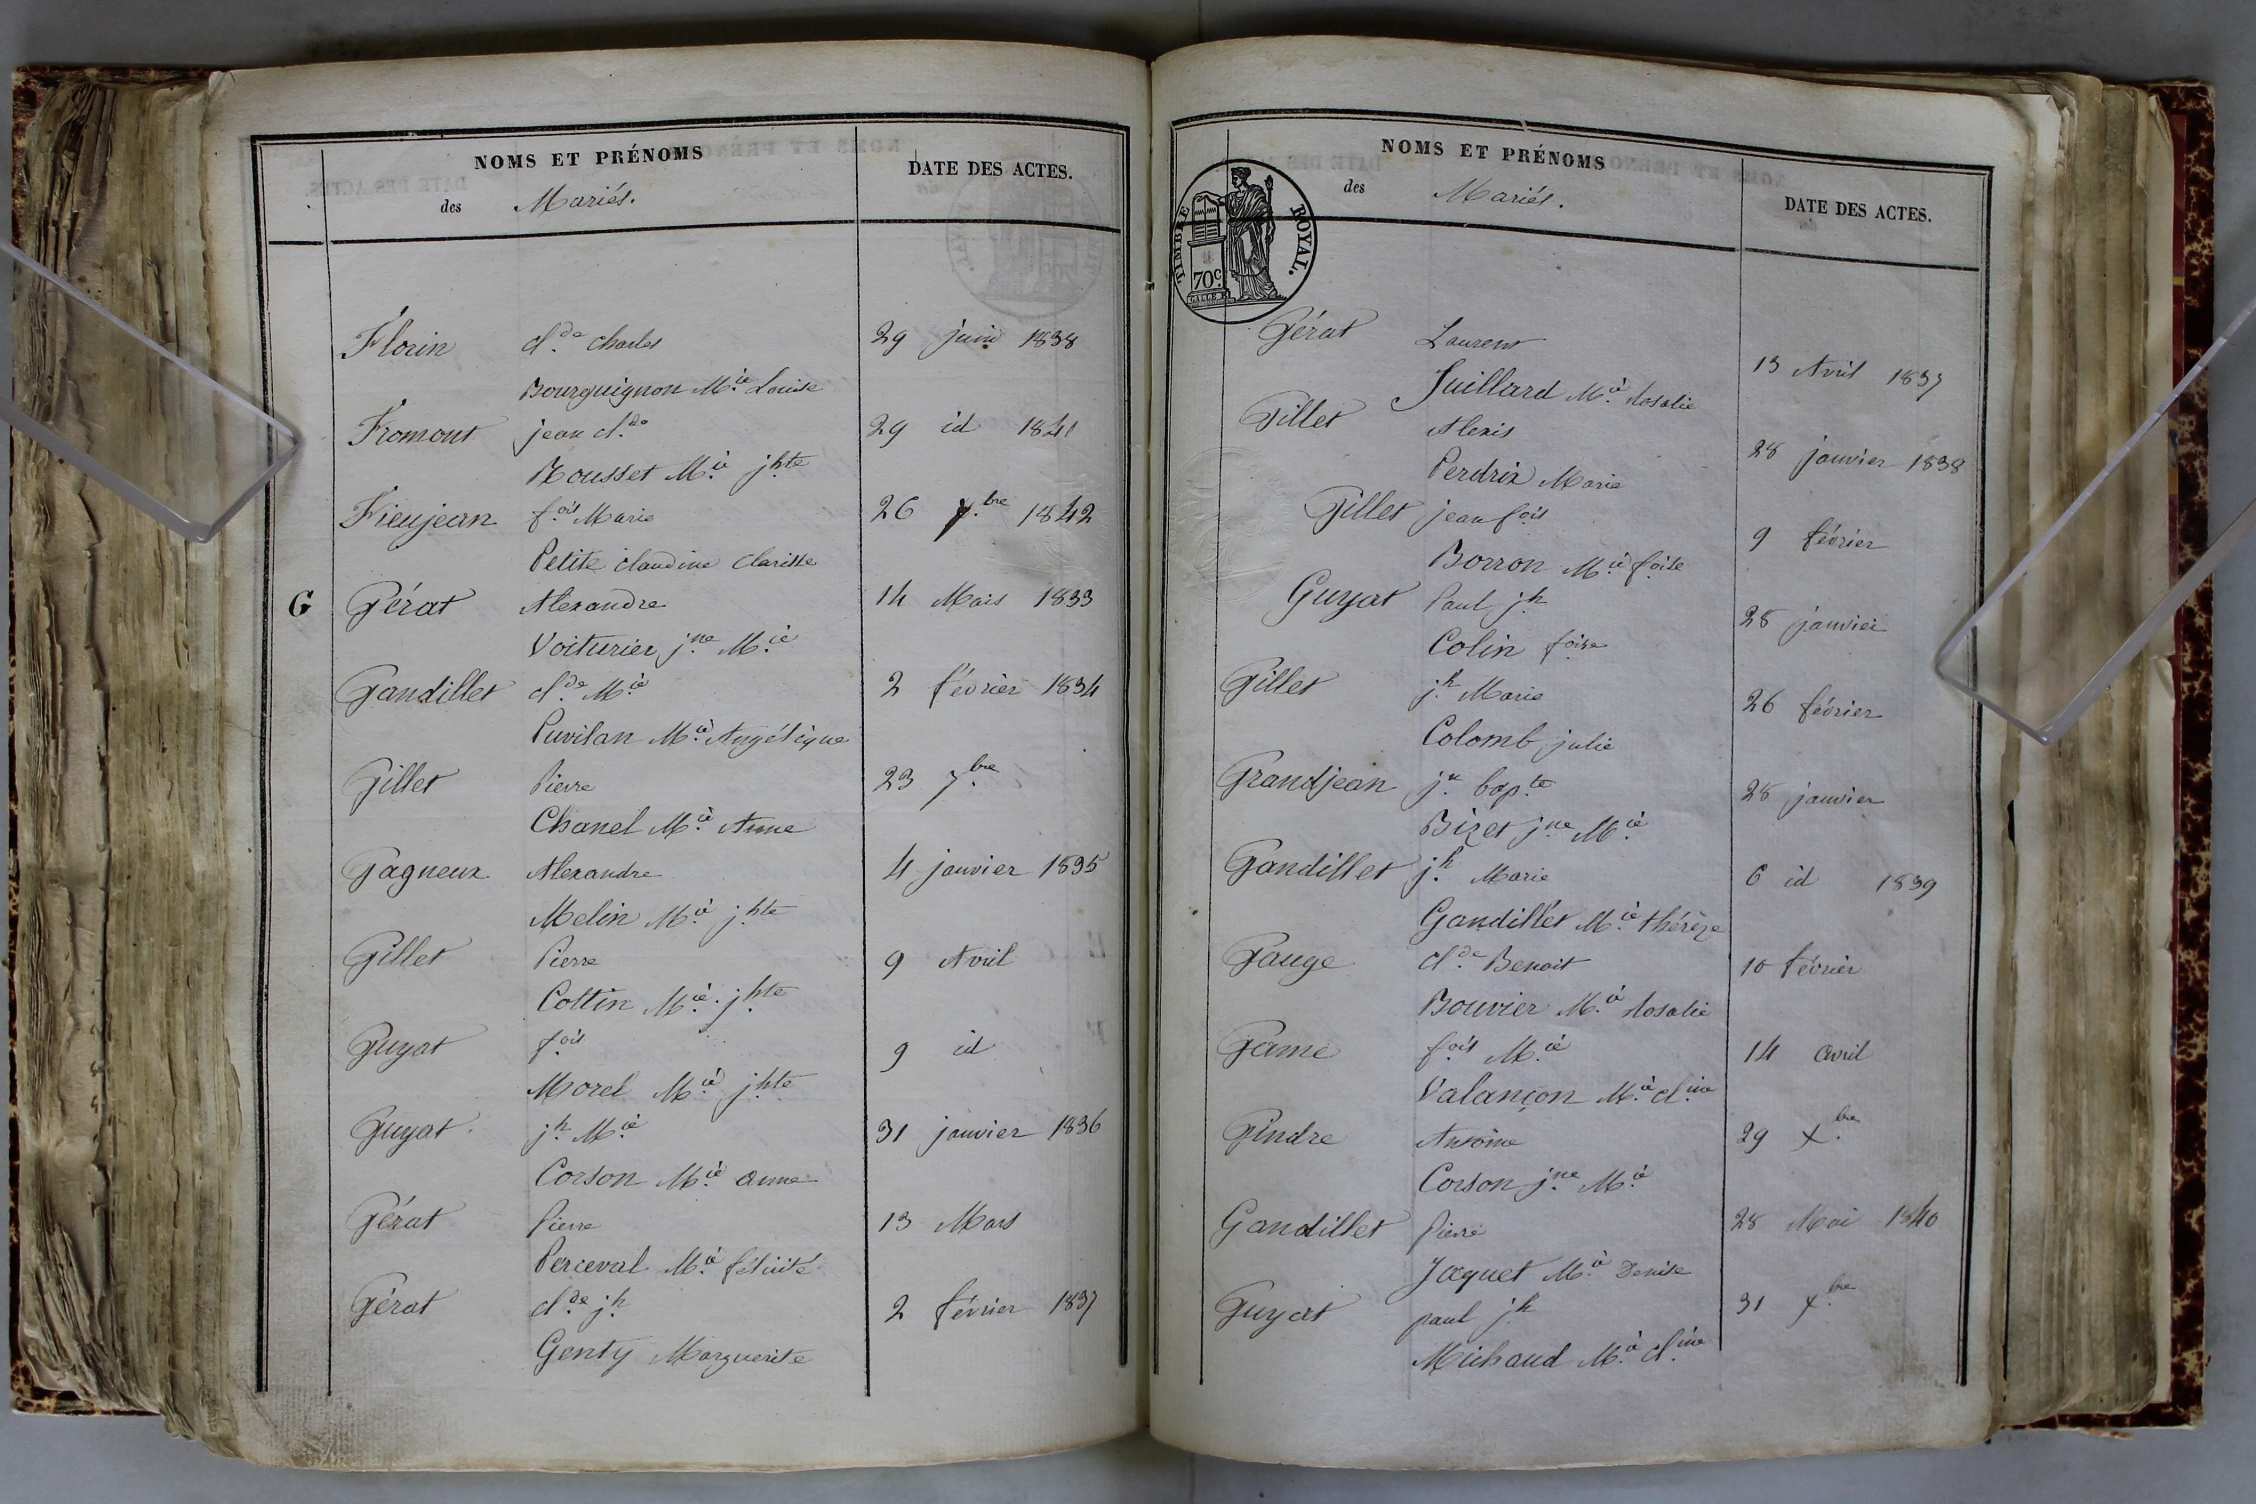 NOMS ET PRÉNOMS
des Mariés.
DATE DES ACTES.
Florin cl.de charles 29 juin 1838
Bourguignon M.ie Louise
Fromont jean cl.de 29 id 1841
Rousset M.ie j.hte
Fieujean f.ois Marie 26 x.bre 1842
Petite claudine clarisse
G Gérat Alexandre 14 Mars 1833
Voiturier j.ne M.ie
Gandillet cl.de M.ie 2 février 1834
Puvilan M.ie Angélique
Gillet Pierre 23 7.bre
Chanel M.ie Anne
Gagneux Alexandre 4 janvier 1835
Melin M.ie j.hte
Gillet Pierre 9 Avril
Cottin M.ie j.hte
Guyat f.ois 9 id
Morel M.ie j.hte
Guyat j.h M.ie 31 janvier 1836
Corson M.ie anne
Gérat Pierre 13 Mars
Perceval M.ie félicité
Gérat cl.de j.h 2 février 1837
Genty Marguerite
NOMS ET PRÉNOMS
des Mariés.
DATE DES ACTES.
TIMBRE ROYAL.
70c.
Gérat Laurent
Juillard M.ie Rosalie 13 Avril 1837
Gillet Alexis
Perdrix Marie 28 janvier 1838
Gillet jean f.ois
Borron M.ie f.oise 9 février
Guyat Paul j.h
Colin f.oise 28 janvier
Gillet j.h Marie 26 février
Colomb julie
Grandjean j.n bap.te 28 janvier
Bizet j.ne M.ie
Gandillet j.h Marie 6 id 1839
Gandillet M.ie thérèze
Gauge cl.de Benoit 10 février
Bouvier M.ie Rosalie
Game f.ois M.ie 14 avril
Valançon M.ie cl.ine
Gindre Antoine 29 x.bre
Corson j.ne M.ie
Gandillet Pierre 28 Mai 1840
Jaquet M.ie Denise
Guyat paul j.h 31 x.bre
Michaud M.ie cl.ine